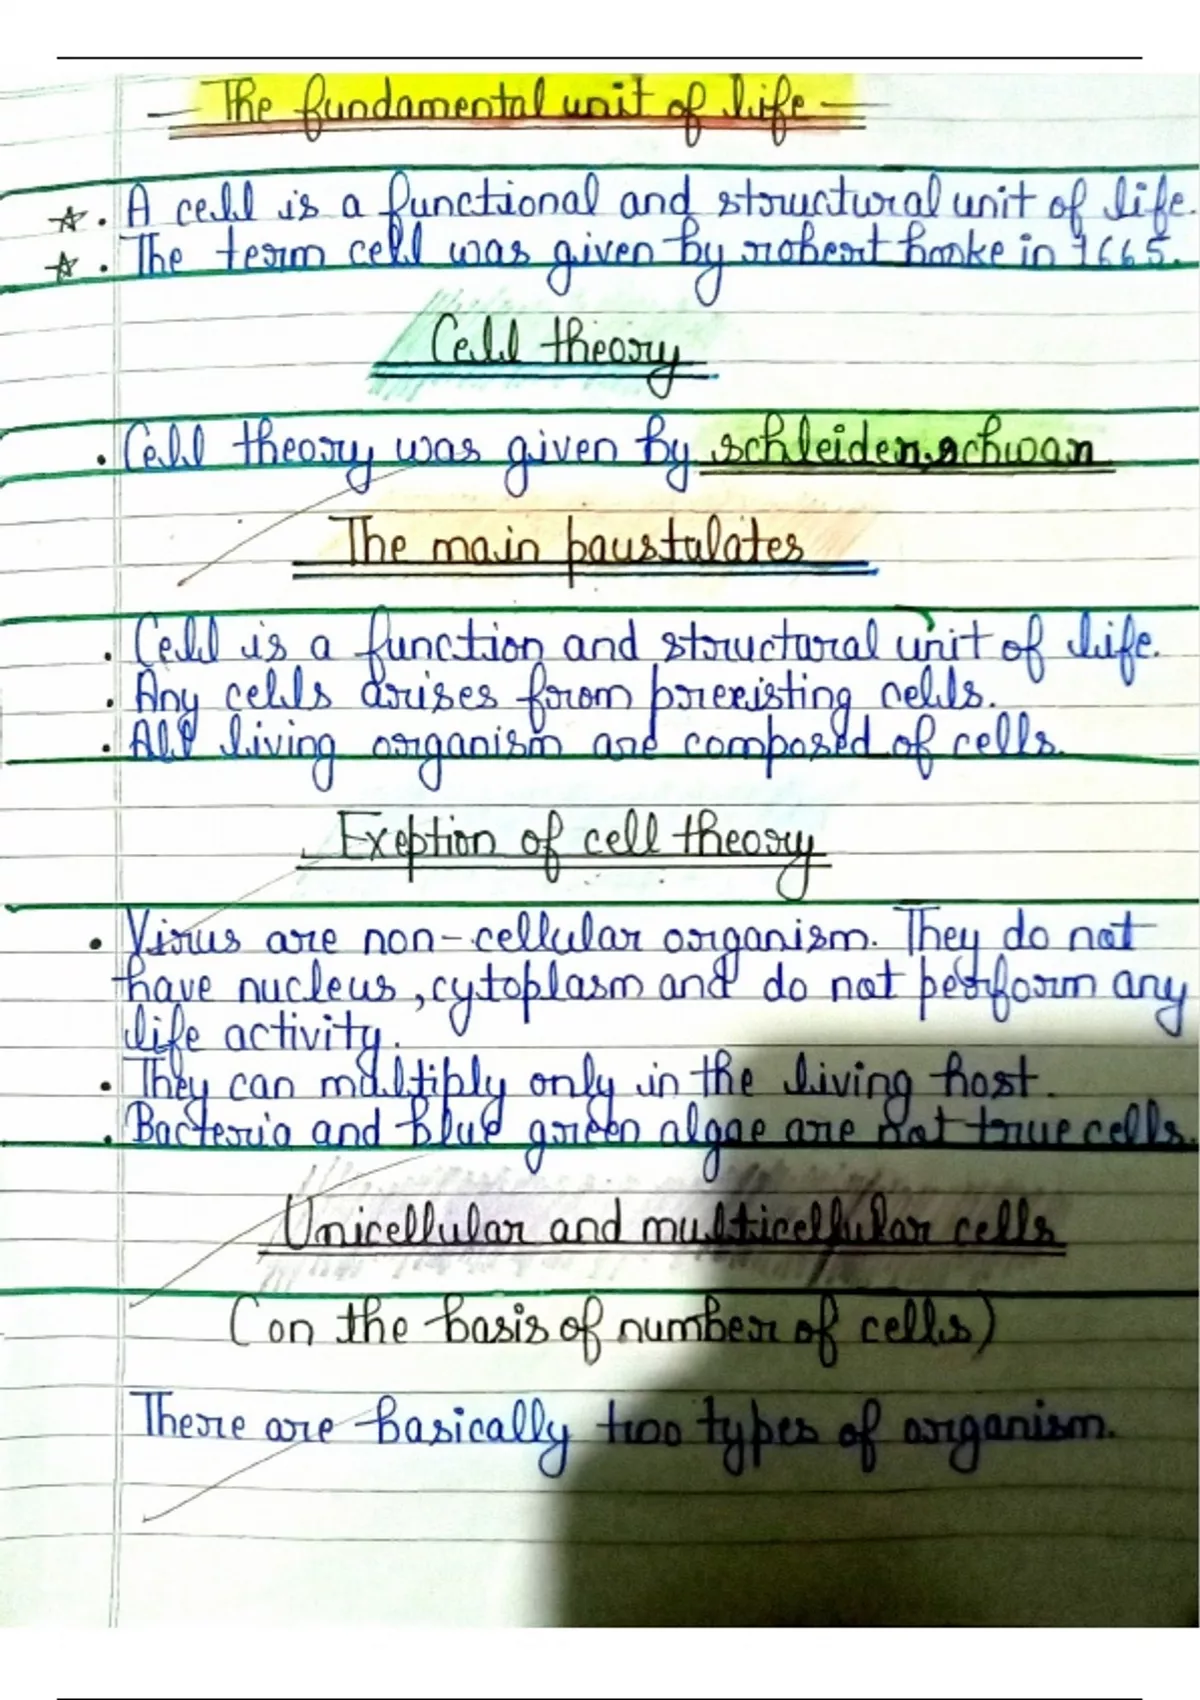 The fundamental unit of life
A cell is a functional and structural unit of life.
The term cell was given by robert hooke in 1665.
Cell theory
Cell theory was given by schleiden, schwan
The main paustulates
Cell is a function and structural unit of life.
Any cells arises from preexisting cells.
All living organism are composed of cells.
Exeption of cell theory
Virus are non-cellular organism. They do not
have nucleus, cytoplasm and do not perform any
life activity.
They can multiply only in the living host.
Bacteria and blue green algae are not true cells.
Unicellular and multicellular cells
(on the basis of number of cells)
There are basically two types of organism.